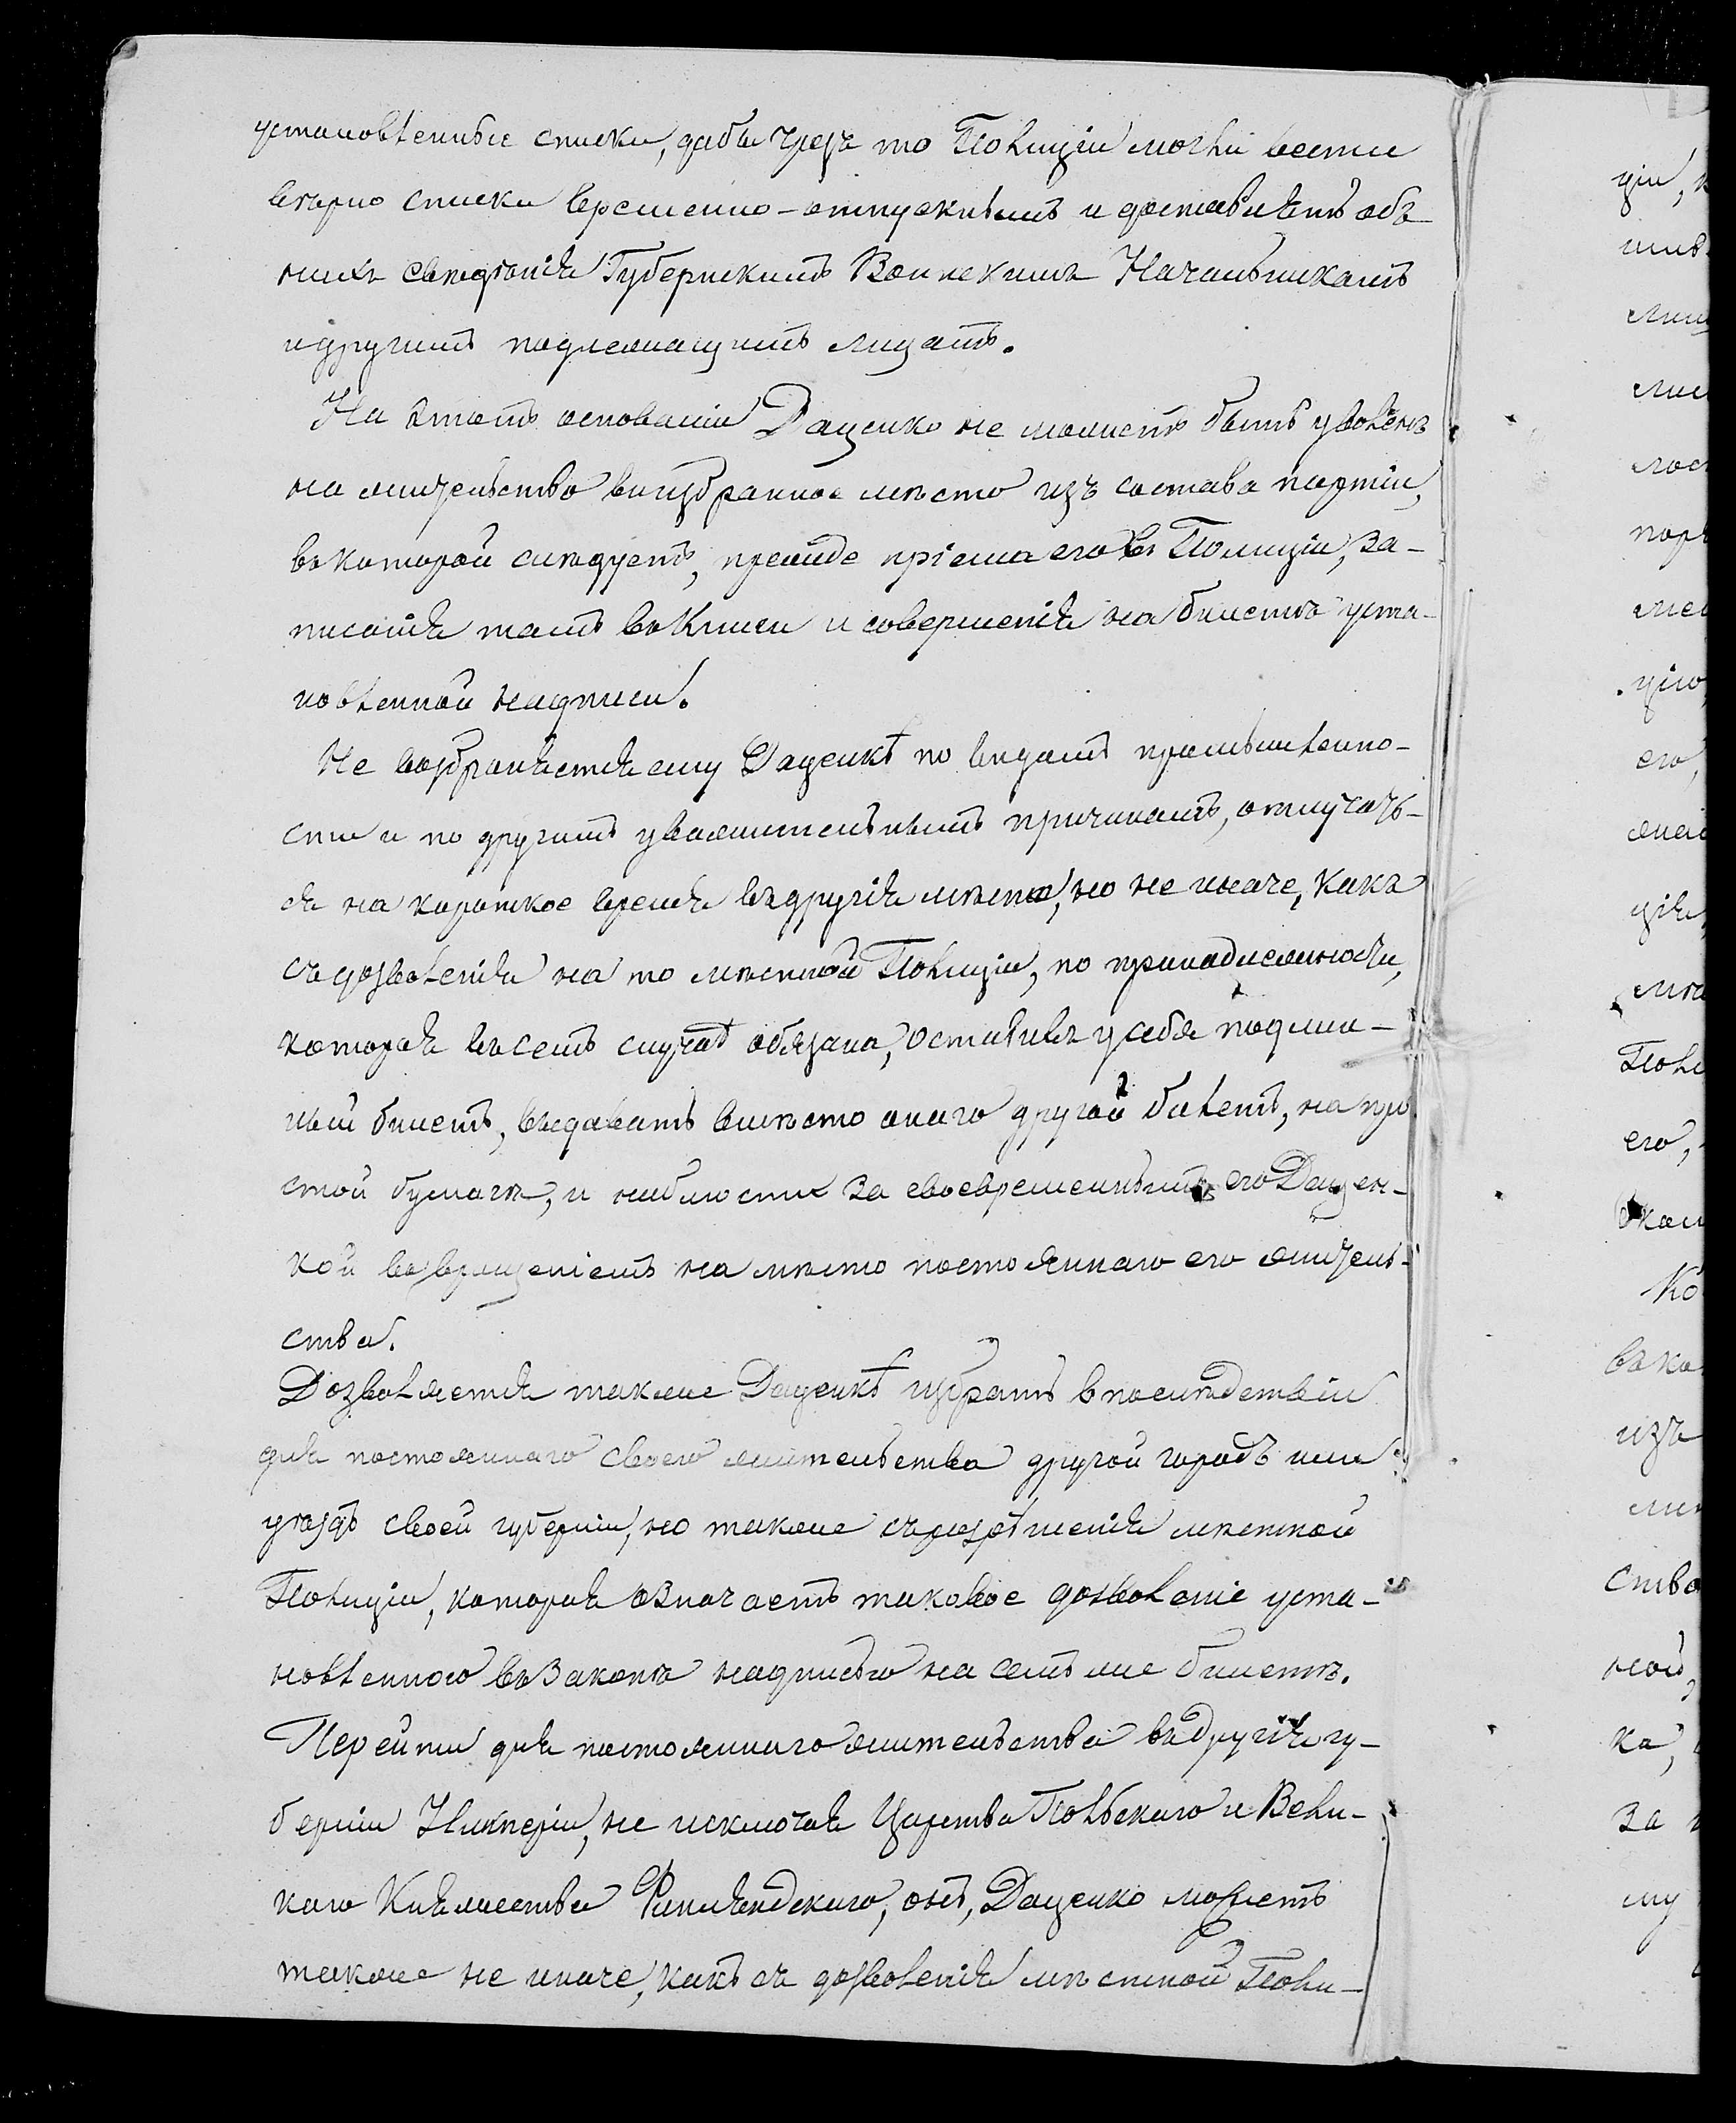 установленные списки, дабы чрезъ то Полиціи могли вести
вѣрно списки временно-отпускнымъ и доставлять объ
нихъ свѣдѣнія Губернскимъ Воинскимъ Начальникамъ
и другимъ подлежащимъ лицамъ.
На этомъ основаніи Даценко не можетъ быть уволенъ
на жительство въ избранное мѣсто изъ состава партіи,
въ которой слѣдуетъ, прежде пріема его въ Полиціи, за-
писанія тамъ въ книги и совершенія на билетѣ уста-
новленной надписи.
Не возбраняется ему Даценкѣ по видамъ промышленно-
сти и по другимъ уважительнымъ причинамъ, отлучать-
ся на короткое время въ другія мѣста, но не иначе, какъ
съ дозволенія на то мѣстной Полиціи, по принадлежности,
которая въ семъ случаѣ обязана, оставивъ у себя подлин-
ный билетъ, выдавать вмѣсто онаго другой билетъ, на про
стой бумагѣ, и наблюсти за своевременнымъ его Дацен-
кой возвращеніемъ на мѣсто постояннаго его житель-
ства.
Дозволяется также Даценкѣ избрать впослѣдствіи
для постояннаго своего жительства другой городъ или
уѣздъ своей губерніи, но также съ разрѣшенія мѣстной
Полиціи, которая означаетъ таковое дозволеніе уста-
новленною въ Законѣ надписью на семъ же билетѣ.
Перейти для постояннаго жительства въ другія гу-
берніи Имперіи, не исключая Царства Польскаго и Вели-
каго Княжества Финляндскаго, онъ, Даценко можетъ
также не иначе, какъ съ дозволенія мѣстной Поли-